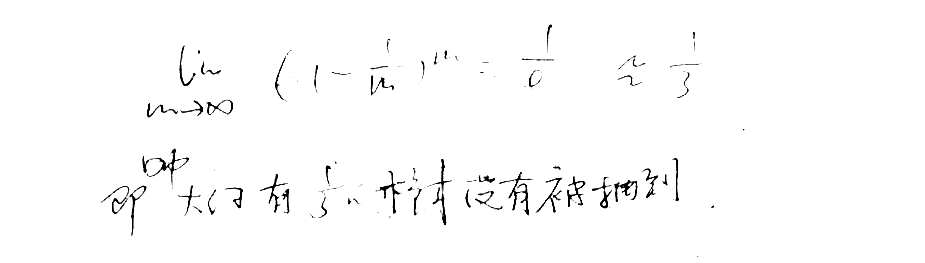 lim m→∞ (1 - 1/m)^m = 1/e ≈ 1/3
即 大约有 1/3 的样本没有被抽到.